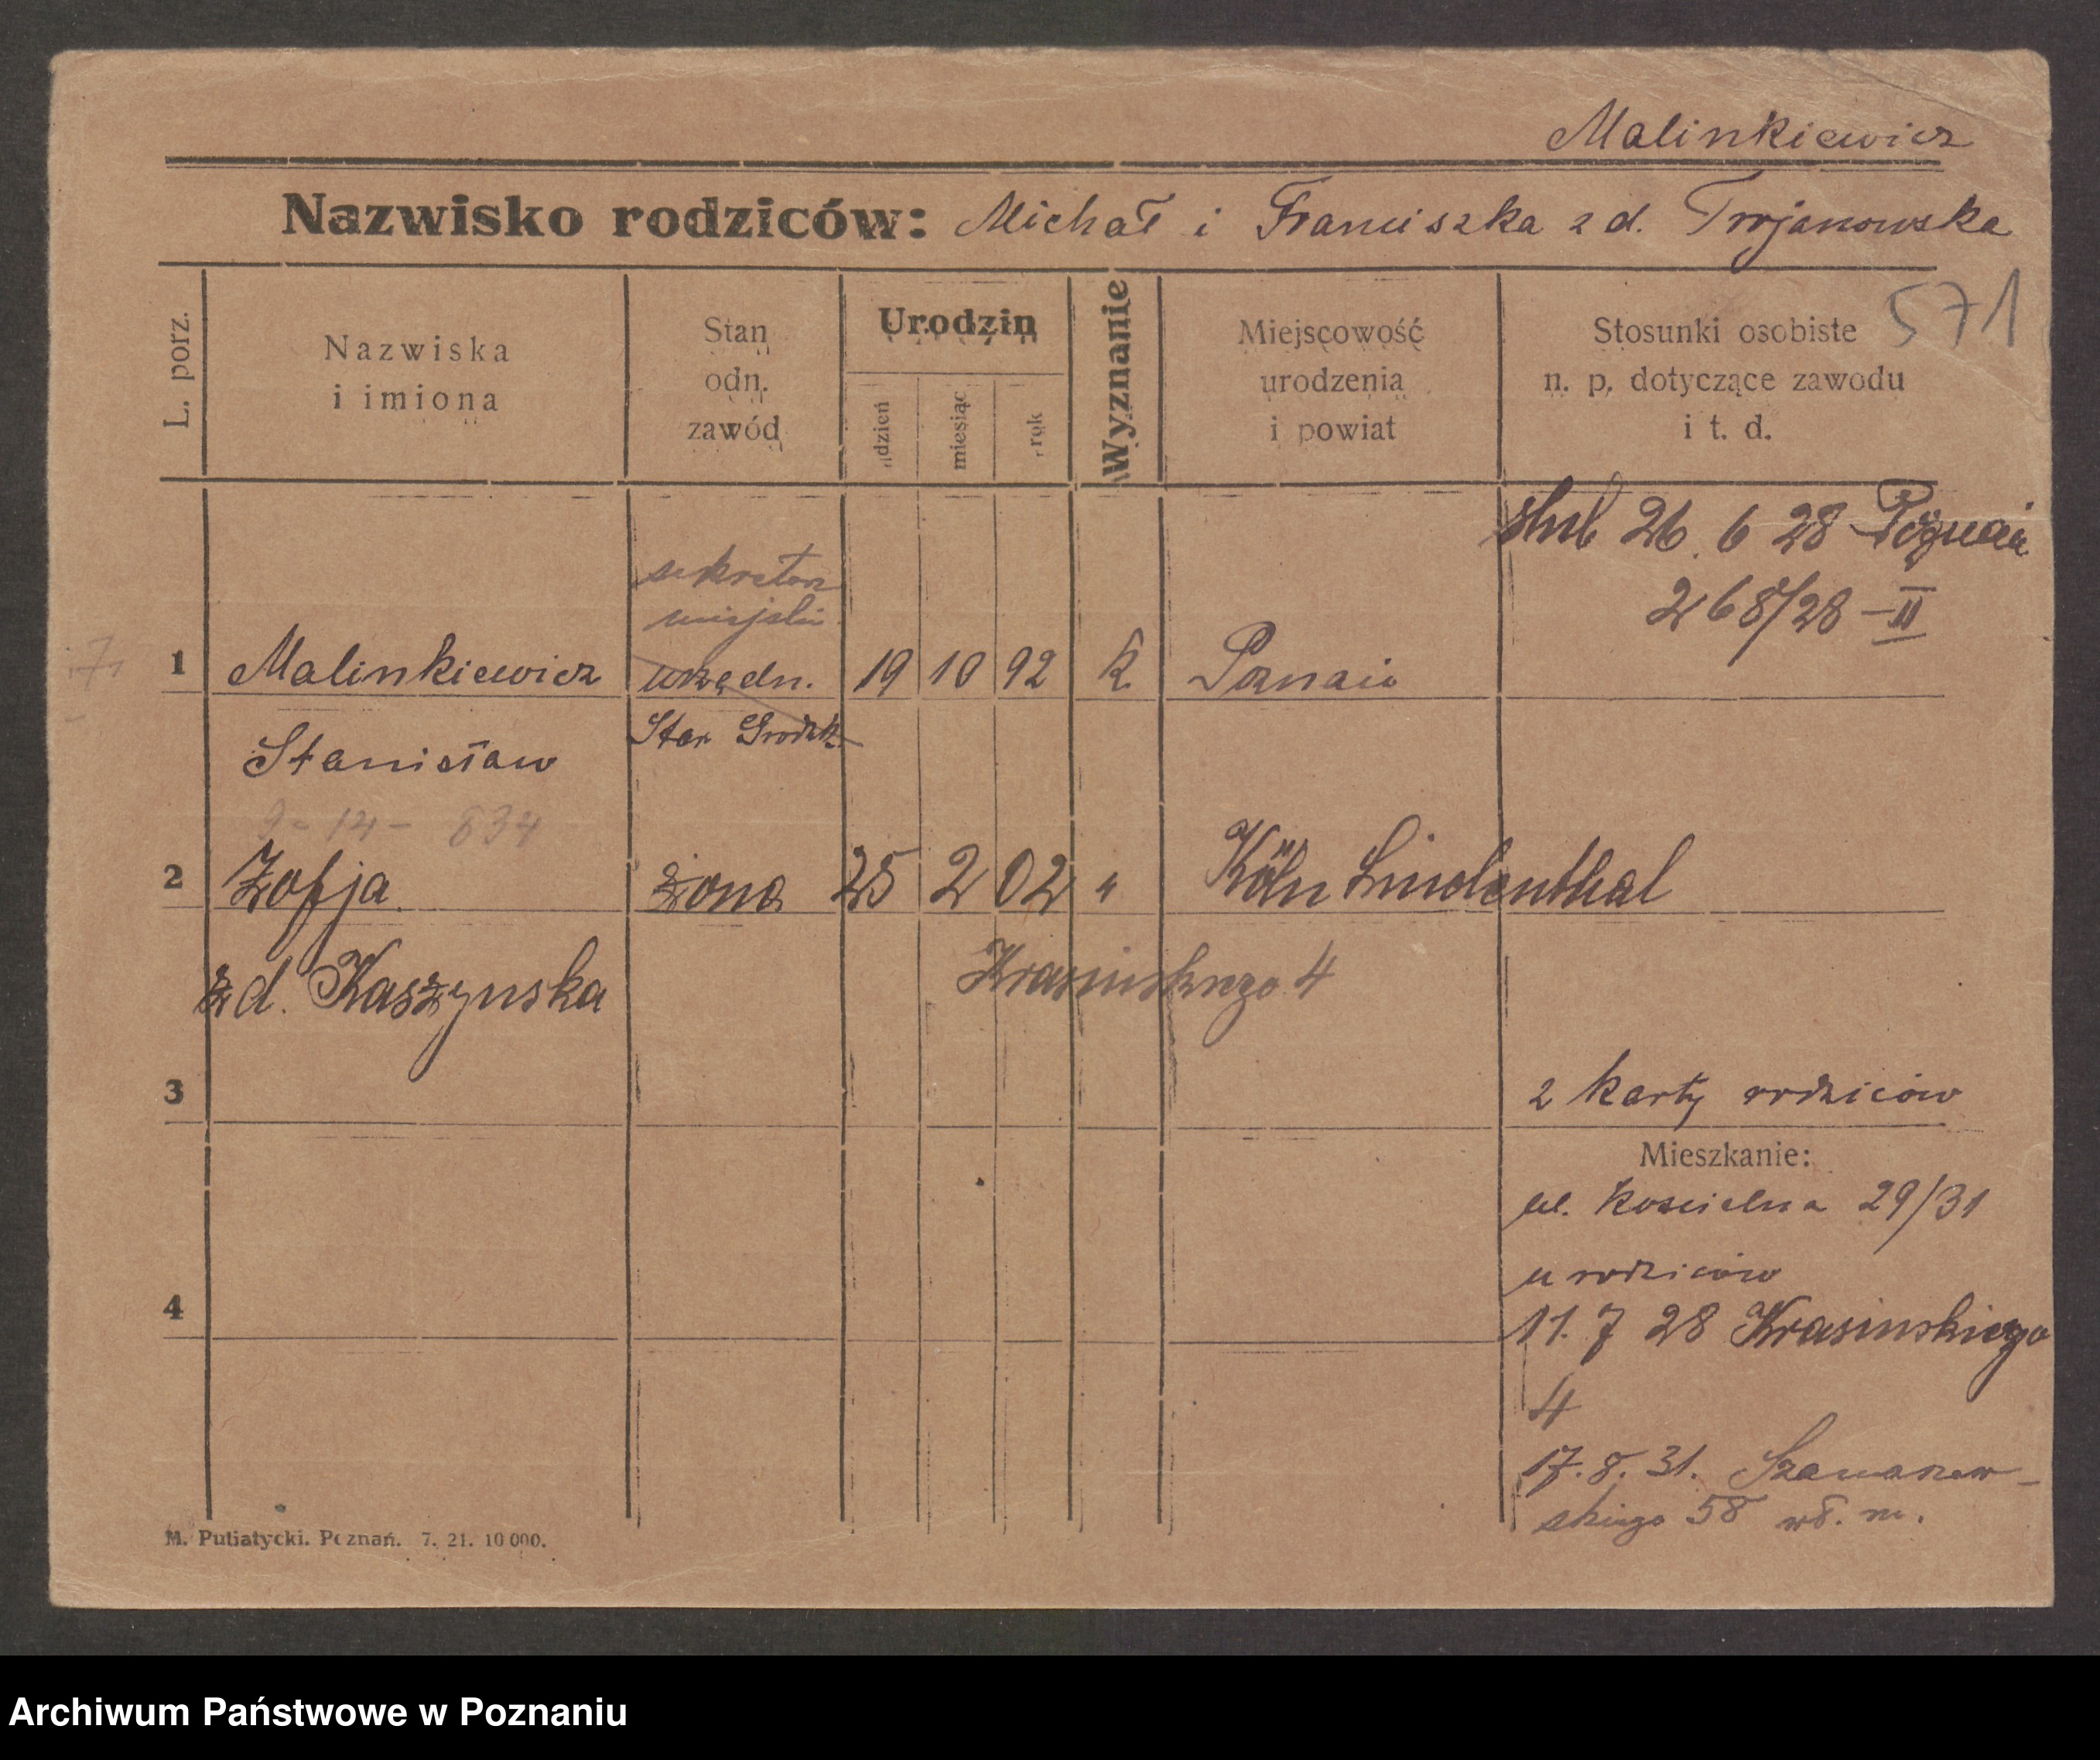 Malinkiewicz
Nazwisko rodziców: Michał i Franciszka z d. Trojanowska
571
L. porz.
Nazwiska
i imiona
Stan
odn.
zawód
Urodzin
dzień
miesiąc
rok
Wyznanie
Miejscowość
urodzenia
i powiat
Stosunki osobiste
n. p. dotyczące zawodu
i t. d.
ślub 26. 6 28 Poznań
268/28 - II
sekretarz
miejski
1 Malinkiewicz urzędn. 19 10 92 k Poznań
Stanisław Star Grodzk.
9 - 14 - 834
2 Zofja żona 25 2 02 " Köln Lindenthal
z d. Kaszynska Krasinskiego 4
3 2 karty rodziców
Mieszkanie:
ul. Koscielna 29/31
u rodziców
4 11. 7 28 Krasinskiego
4
17. 8. 31. Szamarzew-
skiego 58 wł. m.
M. Putiatycki. Poznań. 7. 21. 10 000.
Archiwum Państwowe w Poznaniu